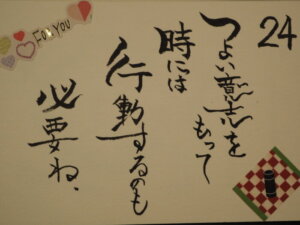 FOR YOU
24
つよい意志を
もって
時には
行動するのも
必要ね、